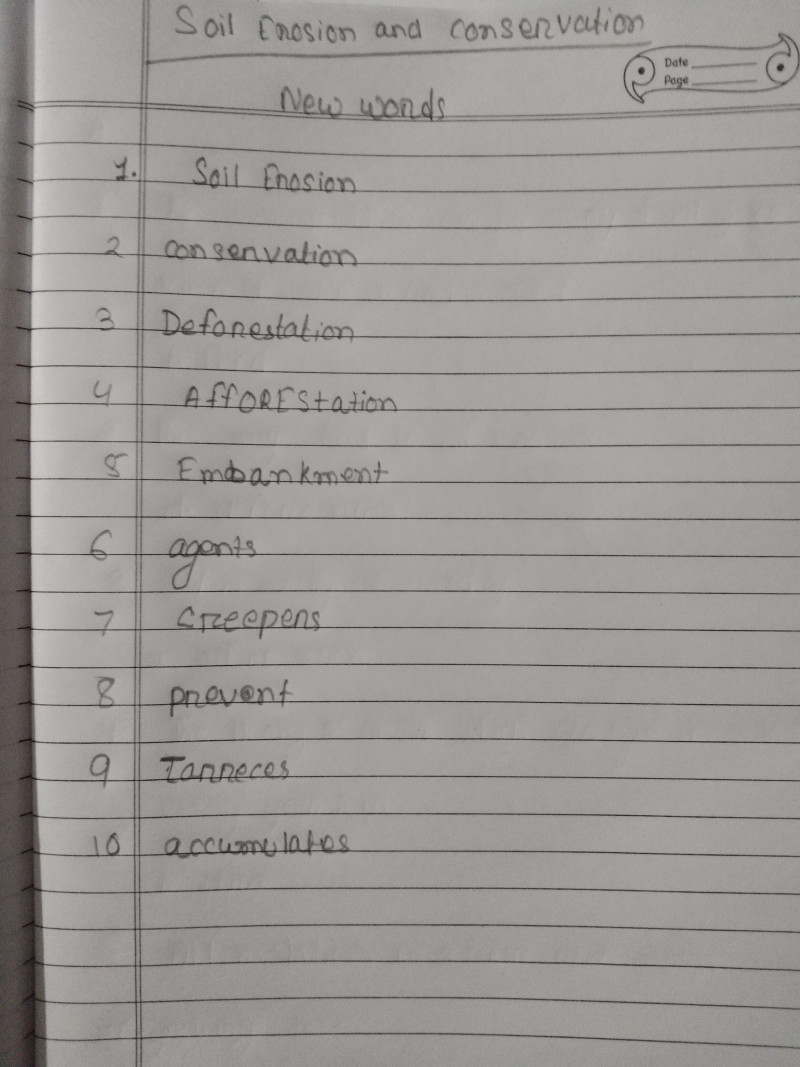 Soil Erosion and conservation
Date
Page
New words
1. Soil Erosion
2 conservation
3 Deforestation
4 AffOREStation
5 Embankment
6 agents
7 Creepers
8 prevent
9 Tarreces
10 accumulates